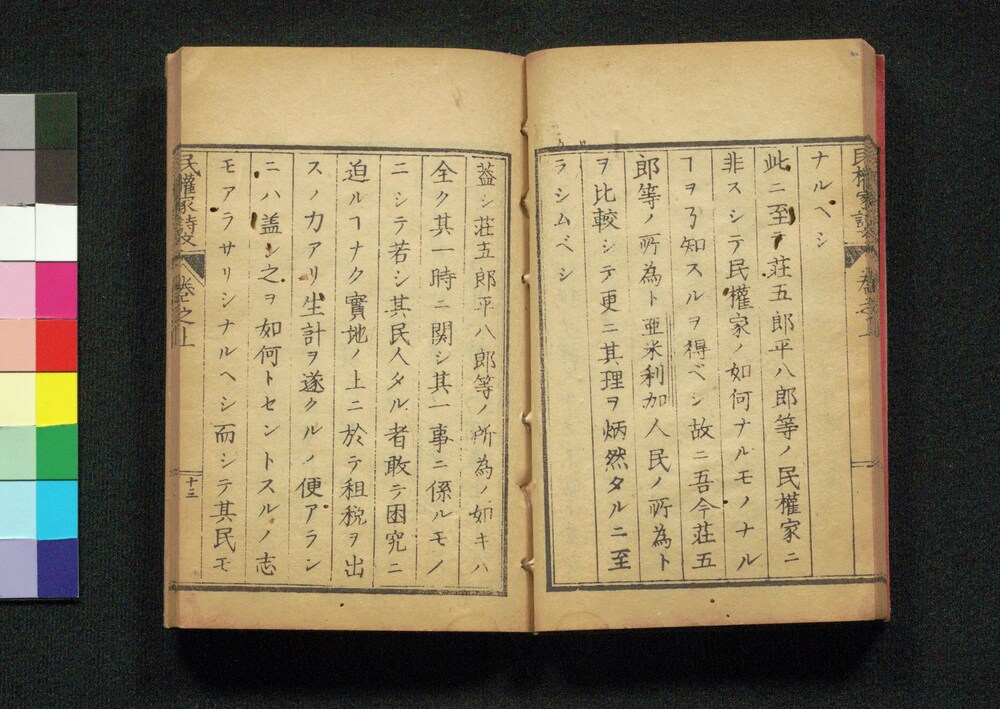 ナルヘシ
此ニ至テ荘五郎平八郎等ノ民權家ニ
非スシテ民權家ノ如何ナルモノナル
ヿヲ了知スルヲ得ベシ故ニ吾今荘五
郎等ノ所為ト亜米利加人民ノ所為ト
ヲ比較シテ更ニ其理ヲ炳然タルニ至
ラシムベシ
蓋シ荘五郎平八郎等ノ所為ノ如キハ
全ク其一時ニ関シ其一事ニ係ルモノ
ニシテ若シ其民人タル者敢テ困究ニ
迫ルヿナク實地ノ上ニ於テ租税ヲ出
スノ力アリ生計ヲ遂クルノ便アラン
ニハ盖シ之ヲ如何トセントスルノ志
モアラサリシナルヘシ而シテ其民モ
民權家
卷之上
十三